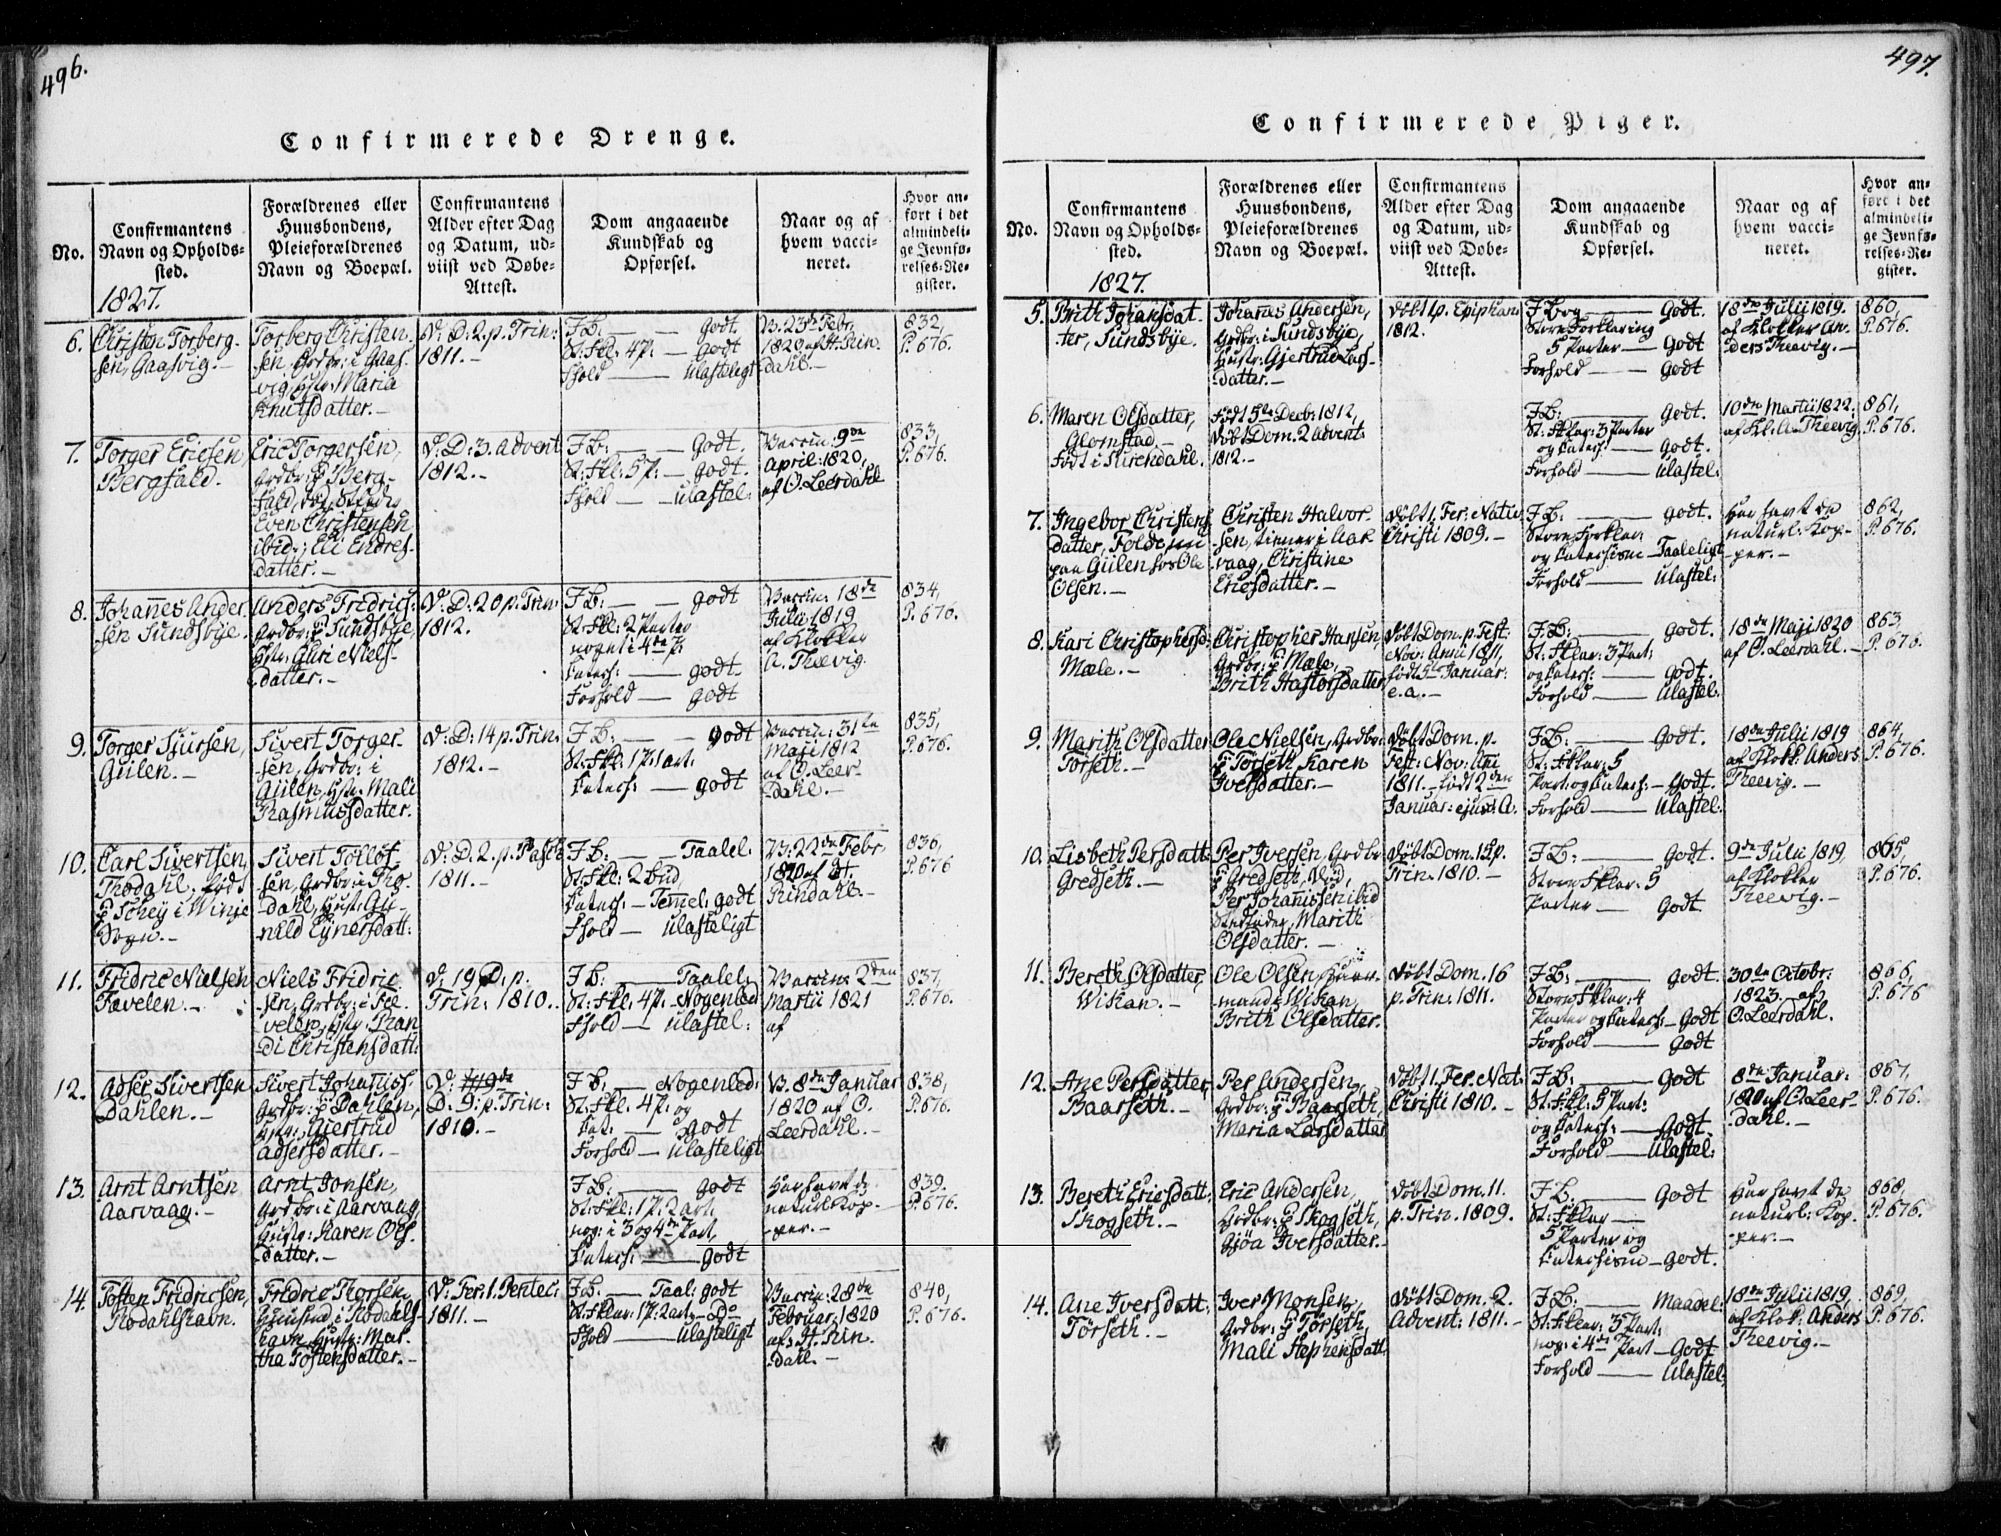 496.
Confirmerede Drenge.
No.
Confirmantens
Navn og Opholds-
sted.
1827.
Forældrenes eller
Huusbondens,
Pleieforældrenes
Navn og Boepæl.
Confirmantens
Alder efter Dag
og Datum, ud-
viist ved Døbe-
Attest.
Dom angaaende
Kundskab og
Opførsel.
Naar og af
hvem vacci-
neret.
Hvor an-
ført i det
almindeli-
ge Jevnfø-
relses-Re-
gister.
6.
Christen Torberg-
sen, Gaasvig.-
Torberg Christen-
sen, Grdbr: i Gaas-
vig, Hstr: Maria
Knutsdatter.-
V: D: 2. p. Trin:
1811.-
F.B: godt.
St: Fkl: 4 P: godt
Fhold ulasteligt
V: 23de Febr,
1820 af H. Rin-
dahl.-
832,
P. 676.
7.
Torger Ericsen,
Bergfald.
Eric Torgersen,
Grdbr: p Berg-
fald,
Even Christensen
ibid:; Eli Endres-
datter.-
V: D: 3. Advent
1812.-
F.B: godt.
St: Fkl: 5 P: godt.
Fhold ulastel:
Vaccin: 9de
April: 1820,
af O. Leerdahl
833,
P. 676.
8.
Johannes Ander-
sen Sundsbye.
Anders Fridrics:
Grdbr: p Sundsbye,
Hstr: Guri Niels-
datter.-
V: D: 20 p. Trin:
1812.
F.B: godt
St: Fkl: 2 Parter
noget i 4de P:
Catech: godt.
Forhold godt
Vaccin: 18de
Julii 1819
af Klokker
A. Theevig.
834,
P. 676.
9.
Torger Sjursen,
Giilen.-
Sivert Torger-
sen, Grdbr: i
Giilen, Hstr: Mali
Rasmusdatter.
V: D: 14 p. Trin:
1812.-
F.B: godt
St: Fkl: 1 P: 1 art:
Catech: godt
Vaccin: 31te
Maji 1812
af O. Leer-
dahl.-
835,
P. 676.
10.
Carl Sivertsen,
Thodahl, Født
p i Winje
Sogn.-
Sivert Tollof-
sen, Grdbr: i Tho-
dahl, Hust: Gu-
nild Ejnersdatt:
V: D. 2. p. Paske
1811.-
F.B: Taalel:
St: Fkl: 2 bud
Catech: Temmel: godt
Fhold ulasteligt
V: 22de Febr,
1820 af H.
Rindahl.-
836,
P. 676
11.
Fridric Nielsen
Fævelen.-
Niels Fridric-
sen, Grdbr: i Fæ-
velen, Hstr: Ran-
di Christensdatt:
V: 19 D. p.
Trin: 1810.
F.B: Taalel:
St: Fkl: 4 P. Nogenled
Fhold ulastel:
Vaccin: 2den
Martii 1821
af
837,
P. 676.
12.
Adser Sivertsen
Dahlen.-
Sivert Johannes:
Grdbr: p Dahlen,
Hstr: Gjertrud
Adsersdatter.-
V: 9de
D: 9: p. Trin:
1810.-
F.B: Nogenled:
St: Fkl: 4 P: og
Cat: godt
Forhold ulasteligt
V. 8de Januar
1820 af O.
Leerdahl.-
838,
P. 676.
13.
Arnt Arntsen
Aarvaag.-
Arnt Jonsen,
Grdbr: i Aarvaag,
Hustr: Karen Ols-
datter.-
F.B: godt
St: Fkl: 1 P: 2 art,
nog: i 3 og 4de Part,
Catech: godt
Har havt de
naturl: Kop-
per.-
839.
P. 676.
14.
Tosten Fridricsen,
Rodahlshavn.
Fridric Thorsen,
Huusmd, i Rodahls-
havn, Hustr: Mar-
tha Tostensdatter.-
V: Fer: 1. Pentec:
1811.-
F.B. Taal: godt
St: Fklar: 1 P: 2 art Do
Fhold ulasteligt
Vaccin: 28de
Februar, 1820
af H. Rin-
dahl.-
840,
P. 676.
497.
Confirmerede Piger.
No.
Confirmantens
Navn og Opholds-
sted.
1827.
Forældrenes eller
Huusbondens,
Pleieforældrenes
Navn og Boepæl.
Confirmantens
Alder efter Dag
og Datum, ud-
viist ved Døbe-
Attest.
Dom angaaende
Kundskab og
Opførsel.
Naar og af
hvem vacci-
neret.
Hvor an-
ført i det
almindeli-
ge Jevnfø-
relses-Re-
gister.
5.
Brith Johansdat-
ter, Sundsbye.
Johannes Andersen,
Grdbr: i Sundsbye,
Hustr: Gjertrud Lars-
datter.-
Døbt 1 p. Epiphan:
1812.
F. Bog Godt.
Store Forklaring
5 Parter Godt
Forhold Godt
18de Julii 1819.
af Klokker An-
ders Theevig.-
860,
P. 676.
6.
Maren Olsdatter,
Glomstad.-
Født i Surendahl.
Født 5te Decb: 1812,
Døbt Dom. 2 Advent:
1812.-
F.B: Godt.
St: Fklar: 3 Parter
og Catech: Godt.
Forhold ulastel:
10de Martii 1822.
af Kl: A. Theevig.
861,
P. 676.
7.
Ingebor Christens-
datter, Folde
paa Giilen hos Ole
Olsen.-
Christen Halvor-
sen, tiener i Aar-
vaag, Christine
Ericsdatter.-
Døbt 1. Fer: Nativ:
Christi 1809.-
F.B: godt.
Store Forklar:
og Catechism Taaleligt
Forhold ulastel:
Har havt de
naturl: Kop-
per.-
862,
P. 676.
8.
Kari Christophersd:
Mæle.-
Christopher Hansen,
Grdbr: p Mæle,
Brith Hastorsdatter
Døbt Dom. p. Fest:
Nov: Anni 1811,
født 5te Januar:
e.a.-
F.B: godt.
St: Fklar: 3 Part:
og Catech: godt.
Forhold ulastel:
18de Maji 1820
af O. Leerdahl.-
863,
P. 676.
9.
Marith Olsdatter
Tørseth.-
Ole Nielsen, Grdbr:
p Tørseth, Karen
Iversdatter.-
Døbt Dom. p.
Fest: Nov: Ani
1811.- født 2den
Januar: ejusd: A.
F.B: Godt.
St: Fklar: 5
Part: og Catech: Godt.
Forhold ulastel:
18de Julii 1819
af Klokk: Anders
Theevig.-
864,
P. 676.
10.
Lisbeth Persdatt:
Gredseth.-
Per Iversen, Grdbr:
p Gredseth,
Per Johannissen ibid
Marith
Olsdatter.-
Døbt Dom. 15 p.
Trin. 1810.-
F.B: Godt.
Store Fklar: 5
Parter Godt
9de Julii 1819
af Klokker
Theevig.-
865,
P. 676.
11.
Bereth Olsdatter,
Wikan.-
Ole Olsen Huus-
mand i Wikan,
Brith Olsdatter.
Døbt Dom. 16
p. Trin. 1811.
F.B: godt.
Store Fklar: 4
Parter og Catech: Godt
Forhold godt
30te Octobr:
1823. af
O. Leerdahl.
866,
P. 676
12.
Ane Persdatter,
Baarseth.-
Per Andersen,
Grdbr: p Baarseth,
Maria Larsdatter
Døbt 1. Fer: Nat:
Christi 1810.-
F.B: Godt
St: Fkl: 5 Part:
og Catech: Godt.
Forhold ulastel:
8de Januar:
1820 af O. Leer-
dahl.-
867,
P. 676.
13.
Bereth Ericsdatt:
Skogseth.-
Eric Andersen,
Grdbr: p Skogseth,
Gjøa Iversdatter.-
Døbt Dom. 11.
p. Trin. 1809.
F.B. Godt
St: Fklar
5 Parter og
Catechism godt.
Har havt de
naturl: Kop-
per.-
868,
P. 676.
14.
Ane Iversdatt:
Tørseth.-
Iver Monsen,
Grdbr: p Tørseth,
Mali Stephensdatt:
Døbt Dom. 2.
Advent: 1811.-
F.B: Maadel:
St: Fklar: 3 Part:
nog: i 4de Part Godt
Forhold ulastel:
18de Julii 1819,
af Klok: Anders
Theevig.-
869,
P. 676.